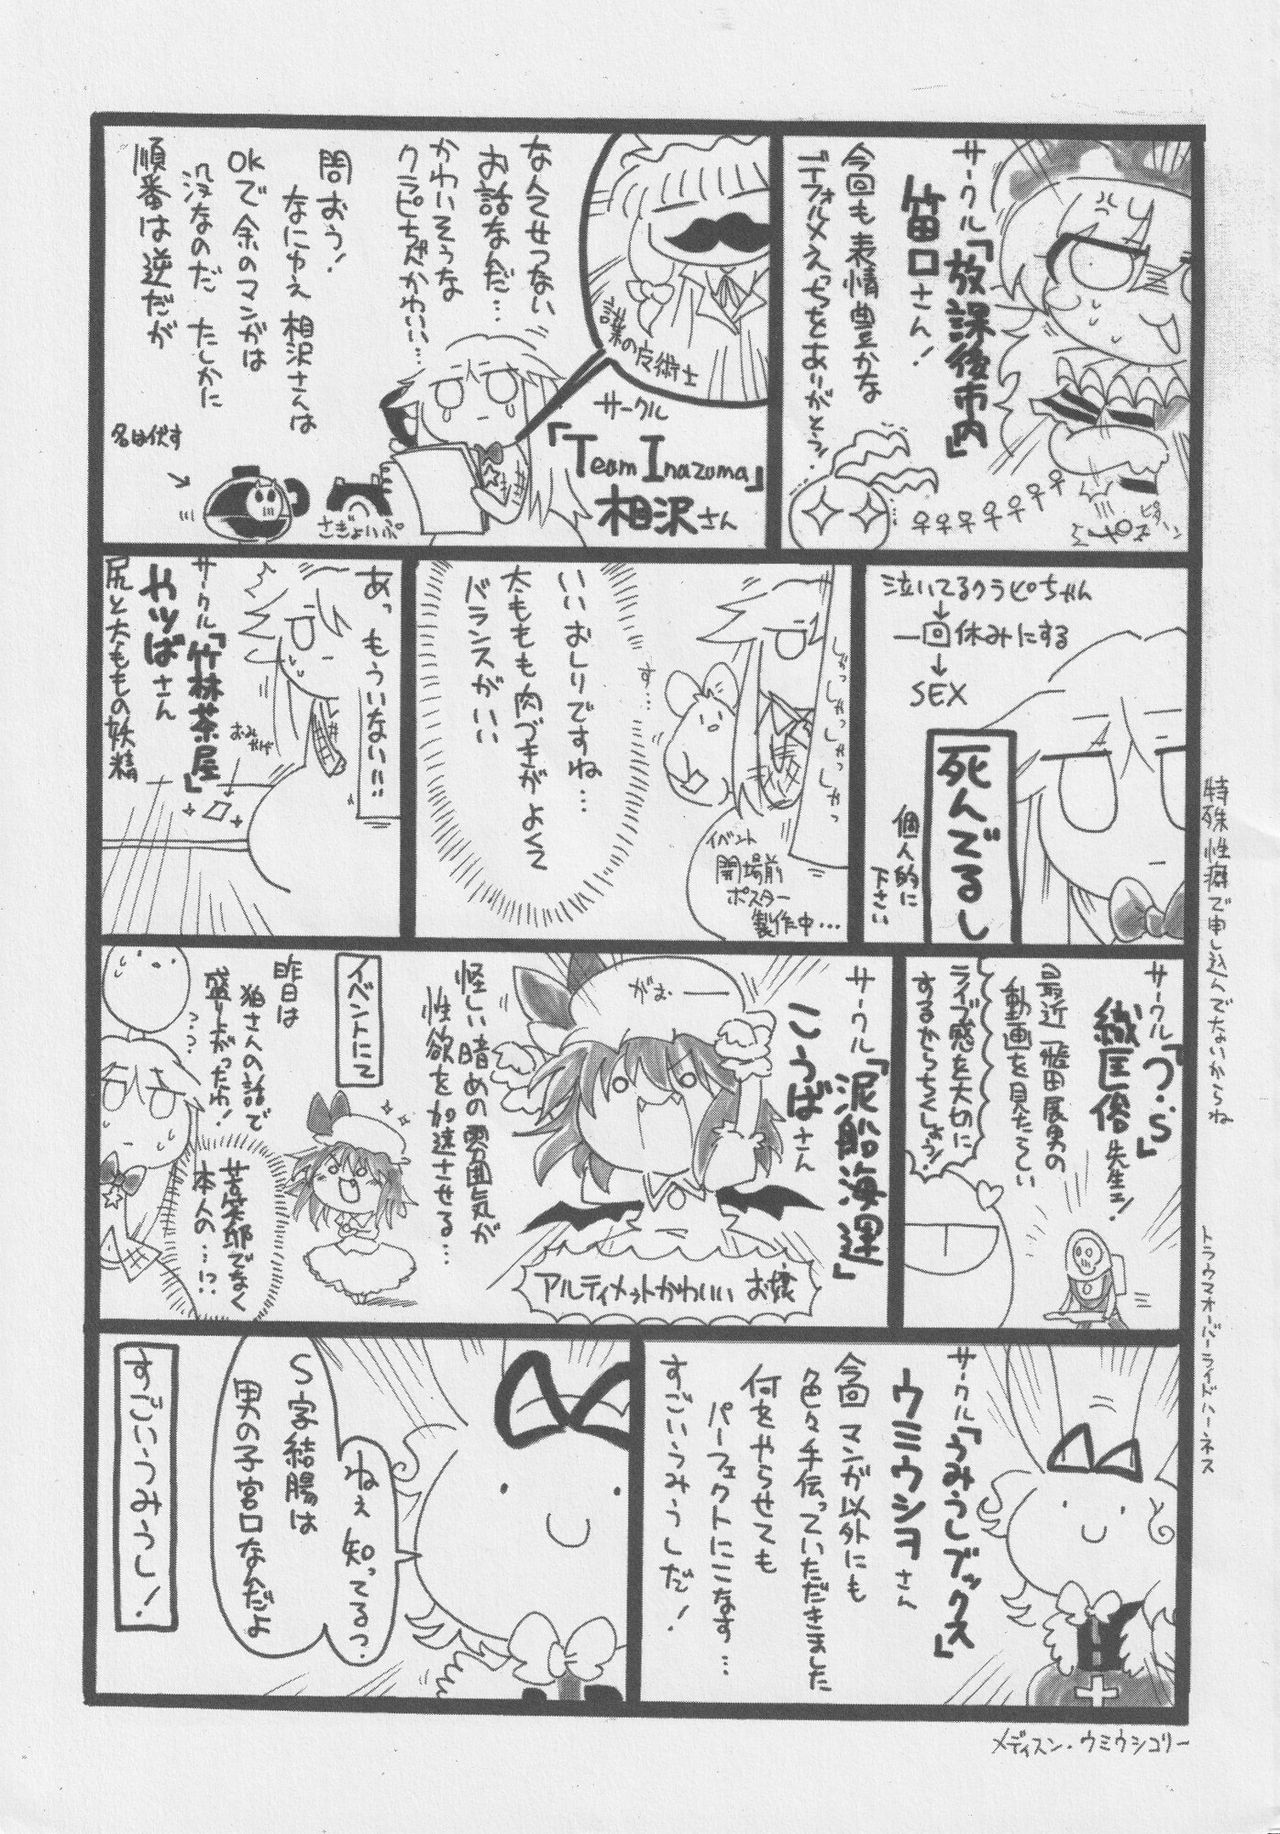 サークル「放課後市内」
笛口さん!
今回も表情豊かな
デフォルメえっちをありがとう!
ピタッ
なんてせつない
お話なんだ…
かわいそうな
クラピちゃんかわいい…
問おう!
なにゆえ相沢さんは
OKで余のマンガは
没なのだ たしかに
順番は逆だが
サークル
「Team Inazuma」
相沢さん
名は伏す
さぎょいぷ
泣いてるクラピちゃん
↓
一回休みにする
↓
SEX
死んでるし
個人的に
下さい
しゃっ しゃっ しゃっ しゃっ
す…
いいおしりですね…
太ももも肉づきがよくて
バランスがいい
イベント
開場前
ポスター
製作中…
あっもういない!!
サークル「竹林茶屋」
やっばさん
尻と太ももの妖精
おみやげ
サークル「つ・s」
織日俗先生ッ!
最近「飯田展男の
動画を見たてい
ライブ感を大切に
するからちくしょう!
サークル「泥船海運」
こうばさん
がおーー
怪しい暗めの雰囲気が
性欲を加速させる…
アルティメットかわいい お嬢
イベントにて
昨日は
狛さんの話で
盛り上がったわ!
苦笑耶でなく
本人の…!?
サークル「うみうしブックス」
ウミウシヲさん
今回マンガ以外にも
色々手伝っていただきました
何をやらせても
パーフェクトにこなす…
すごいうみうしだ!
ねえ知ってるっ
S字結腸は
男の子宮口なんだよ
すごいうみうし!
特殊性癖で申し込んでないからね
トラウマオーバーライドハーネス
メディスン・ウミウシコリー